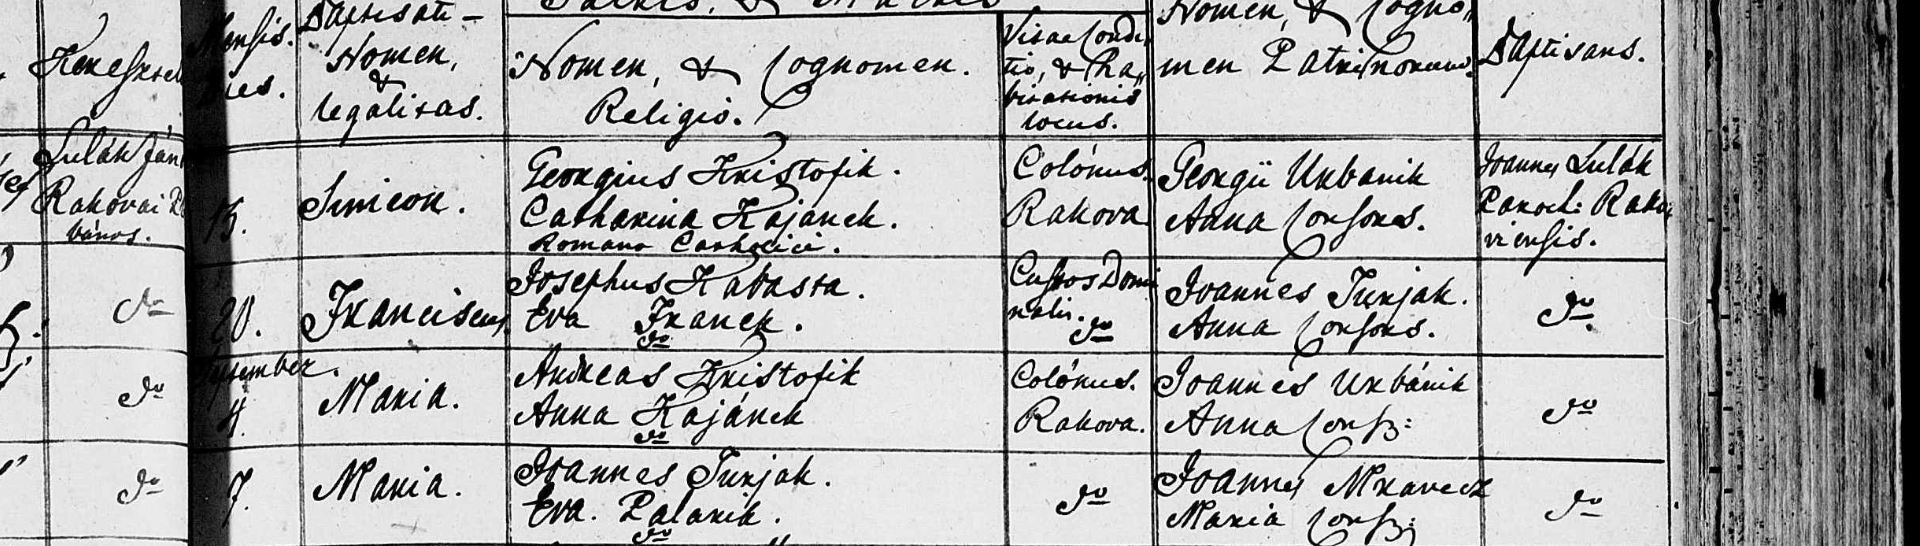 Keresztel
Lulák Ján
Rakovai Pl
bános.
do
do
do
Mensis.
Dies.
Baptisati -
Nomen,
&
legalitas.
Nomen, & Cognomen.
Religio.
Vitae Condi
tio, & Ha„
bitationis
locus.
Nomen, & Cogno„
men Patrinorum.
Baptisans.
13.
Simeon.
Georgius Kristofik.
Catharina Kajanek.
Romano Catholici.
Colónus.
Rakova
Georgii Urbanik
Anna Consors.
Joannes Lulák
Paroch: Rako
viensis.
20.
Franciscus
Josephus Kabasta.
Eva Franek.
do
Custos Domi
nalis.
do
Joannes Turjak.
Anna Consors.
do
September.
4.
Maria.
Andreas Kristofik
Anna Kajánek
do
Colónus.
Rakova.
Joannes Urbánik
Anna Consz:
do
7.
Maria.
Joannes Turjak.
Eva. Palarik.
do
do
Joannes Mravecz
Maria Consz:
do